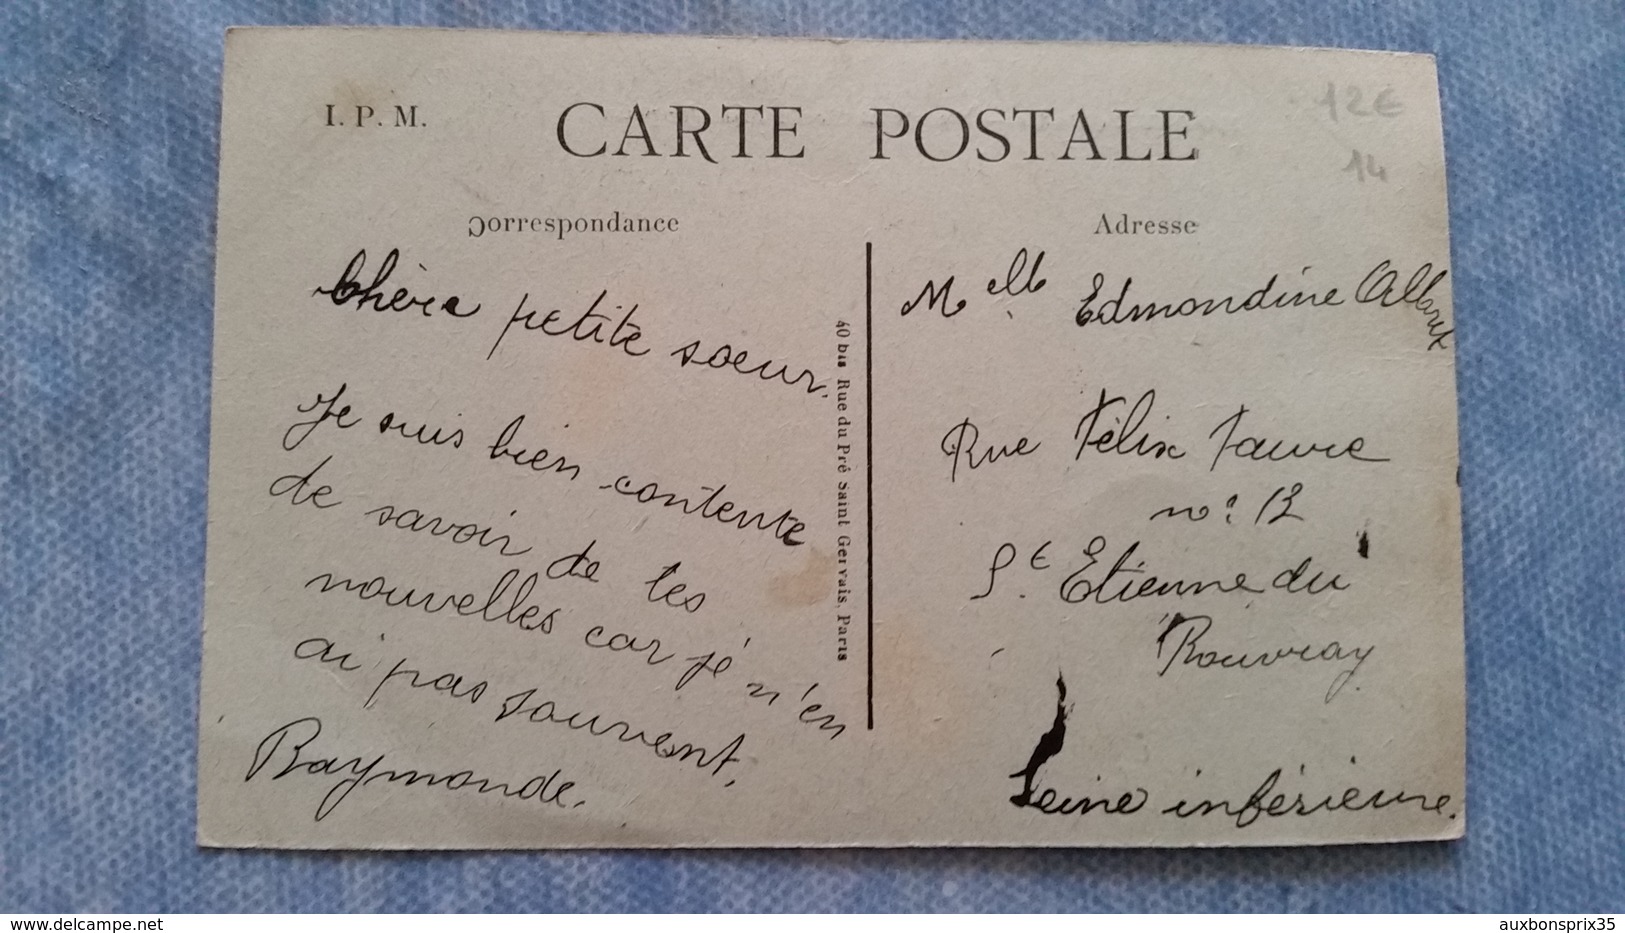 I. P. M.
CARTE POSTALE
12€
14
Correspondance
Adresse
Chère petite soeur.
Je suis bien contente
de savoir de tes
nouvelles car je n'en
ai pas souvent.
Raymonde.
40 bis Rue du Pré Saint Gervais, Paris
Melle Edmondine
Rue Félix Faure
no: 12
St. Etienne du
Rouvray
Seine inférieure.
www.delcampe.net
auxbonsprix35